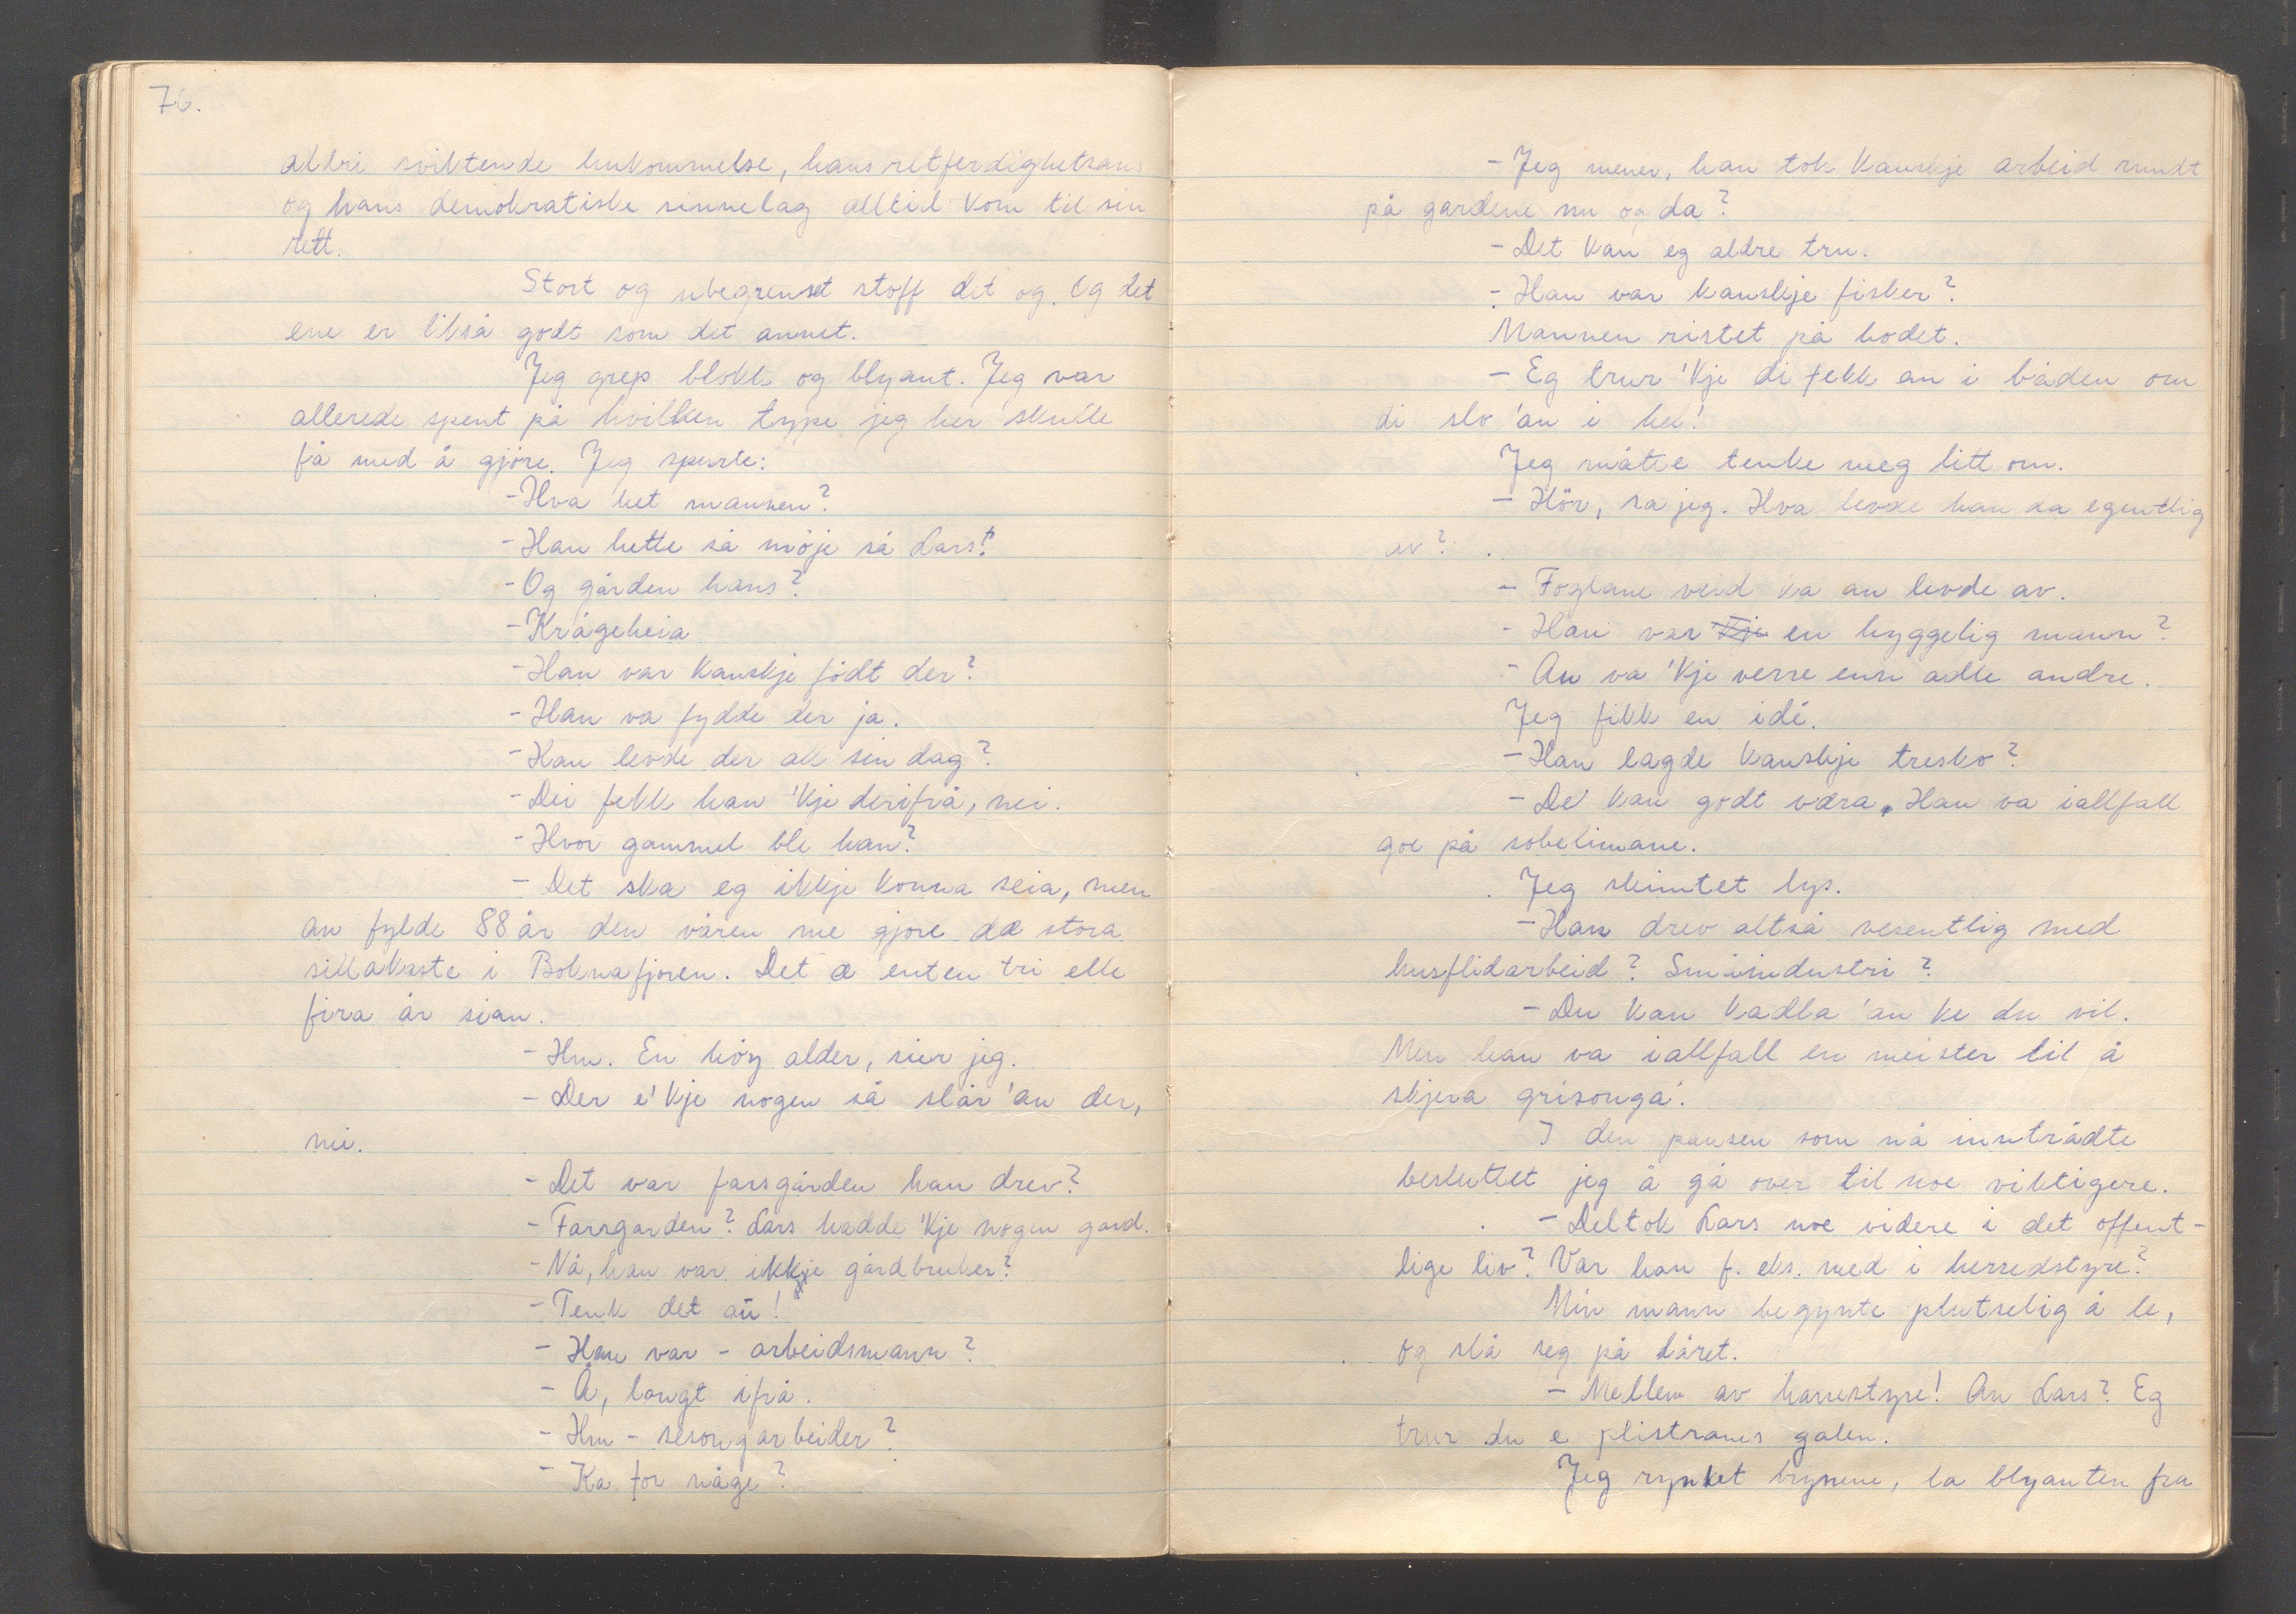 76.
aldri sviktende hukommelse, hans retferdighetsans
og hans demokratiske sinnelag alltid kom til sin
rett.
Stort og ubegrenset stoff det og. Og det
ene er likså godt som det annet.
Jeg grep blokk og blyant. Jeg var
allerede spent på hvilken type jeg her skulle
få med å gjöre. Jeg spurte:
- Hva het mannen?
- Han hette så möje så Lars!
- Og gården hans?
- Krågeheia
- Han var kanskje födt der?
- Han va fydde der ja.
- Han levde der all sin dag?
- Dei fekk han 'kje derifrå, nei.
- Hvor gammel ble han?
- Det ska eg ikkje konna seia, men
an fylde 88 år den våren me gjore dæ stora
sillakaste i Boknafjoren. Det æ enten tri elle
fira år sian.
- Hm. En höy alder, sier jeg.
- Der e' kje nogen så slår 'an der,
nei.
- Det var farsgården han drev?
- Farsgarden? Lars hadde 'kje nogen gard.
- Nå, han var ikkje gårdbruker?
- Tenk det an!
- Han var - arbeidsmann?
- Å, langt ifrå.
- Hm - sesongarbeider?
- Ka for någe?
- Jeg mener, han tok kanskje arbeid rundt
på gardene nu og da?
- Det kan eg aldre tru.
- Han var kanskje fisker?
Mannen ristet på hodet.
- Eg trur 'kje di fekk an i båden om
di slo 'an i hel!
Jeg måtte tenke meg litt om.
- Hör, sa jeg. Hva levde han da egentlig
av?
- Foglane veid ka an levde av.
- Han var 'kje en hyggelig mann?
- An va 'kje verre enn adle andre.
Jeg fikk en idé.
- Han lagde kanskje tresko?
- De' kan godt væra. Han va iallfall
goe på sobelimane.
Jeg skimtet lys.
- Han drev altså vesentlig med
husflidarbeid? Småindustri?
- Du kan kadla 'an ke du vil.
Men han va iallfall en meister til å
skjera grisonga'.
I den pausen som nå inntrådte
besluttet jeg å gå over til noe viktigere.
- Deltok Lars noe videre i det offent-
lige liv? Var han f. eks. med i herredstyre?
Min mann begynte plutselig å le,
og slå seg på låret.
- Mellem av harrestyre! An Lars? Eg
trur du e plistrans galen.
Jeg rynket brynene, la blyanten fra